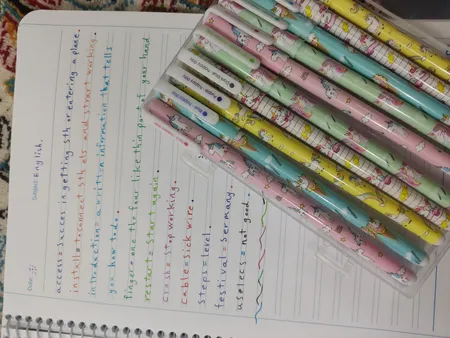 Subject: English.
Date:
access = succes in getting sth or entering a place.
install = to connect sth els and strart working.
instrution = a written information that tells
you how to do.
finger = one the four like thin part of your hand
restart = start again.
crash = stop working.
cable = sick wire.
steps = level.
festival = sermany.
uselecs = not good.